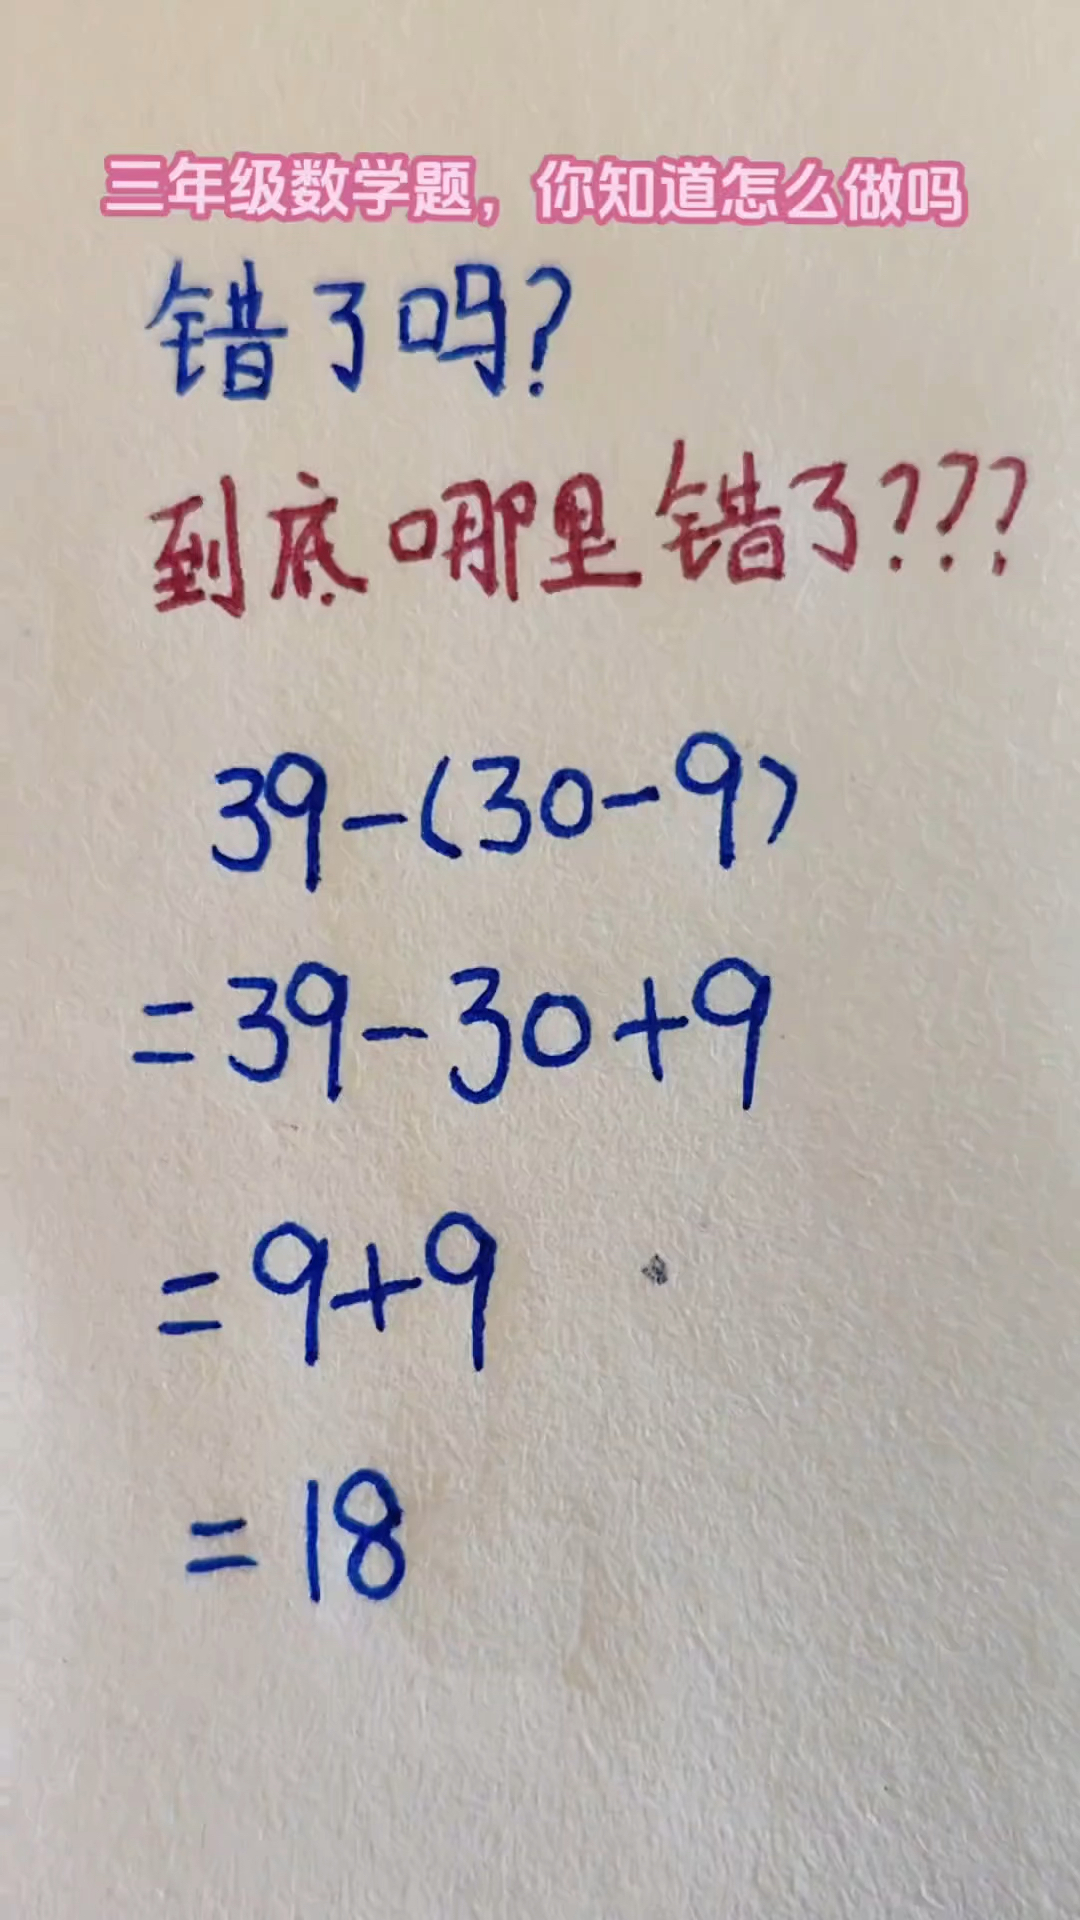 三年级数学题，你知道怎么做吗
错了吗?
到底哪里错了???
39-(30-9)
=39-30+9
=9+9
=18